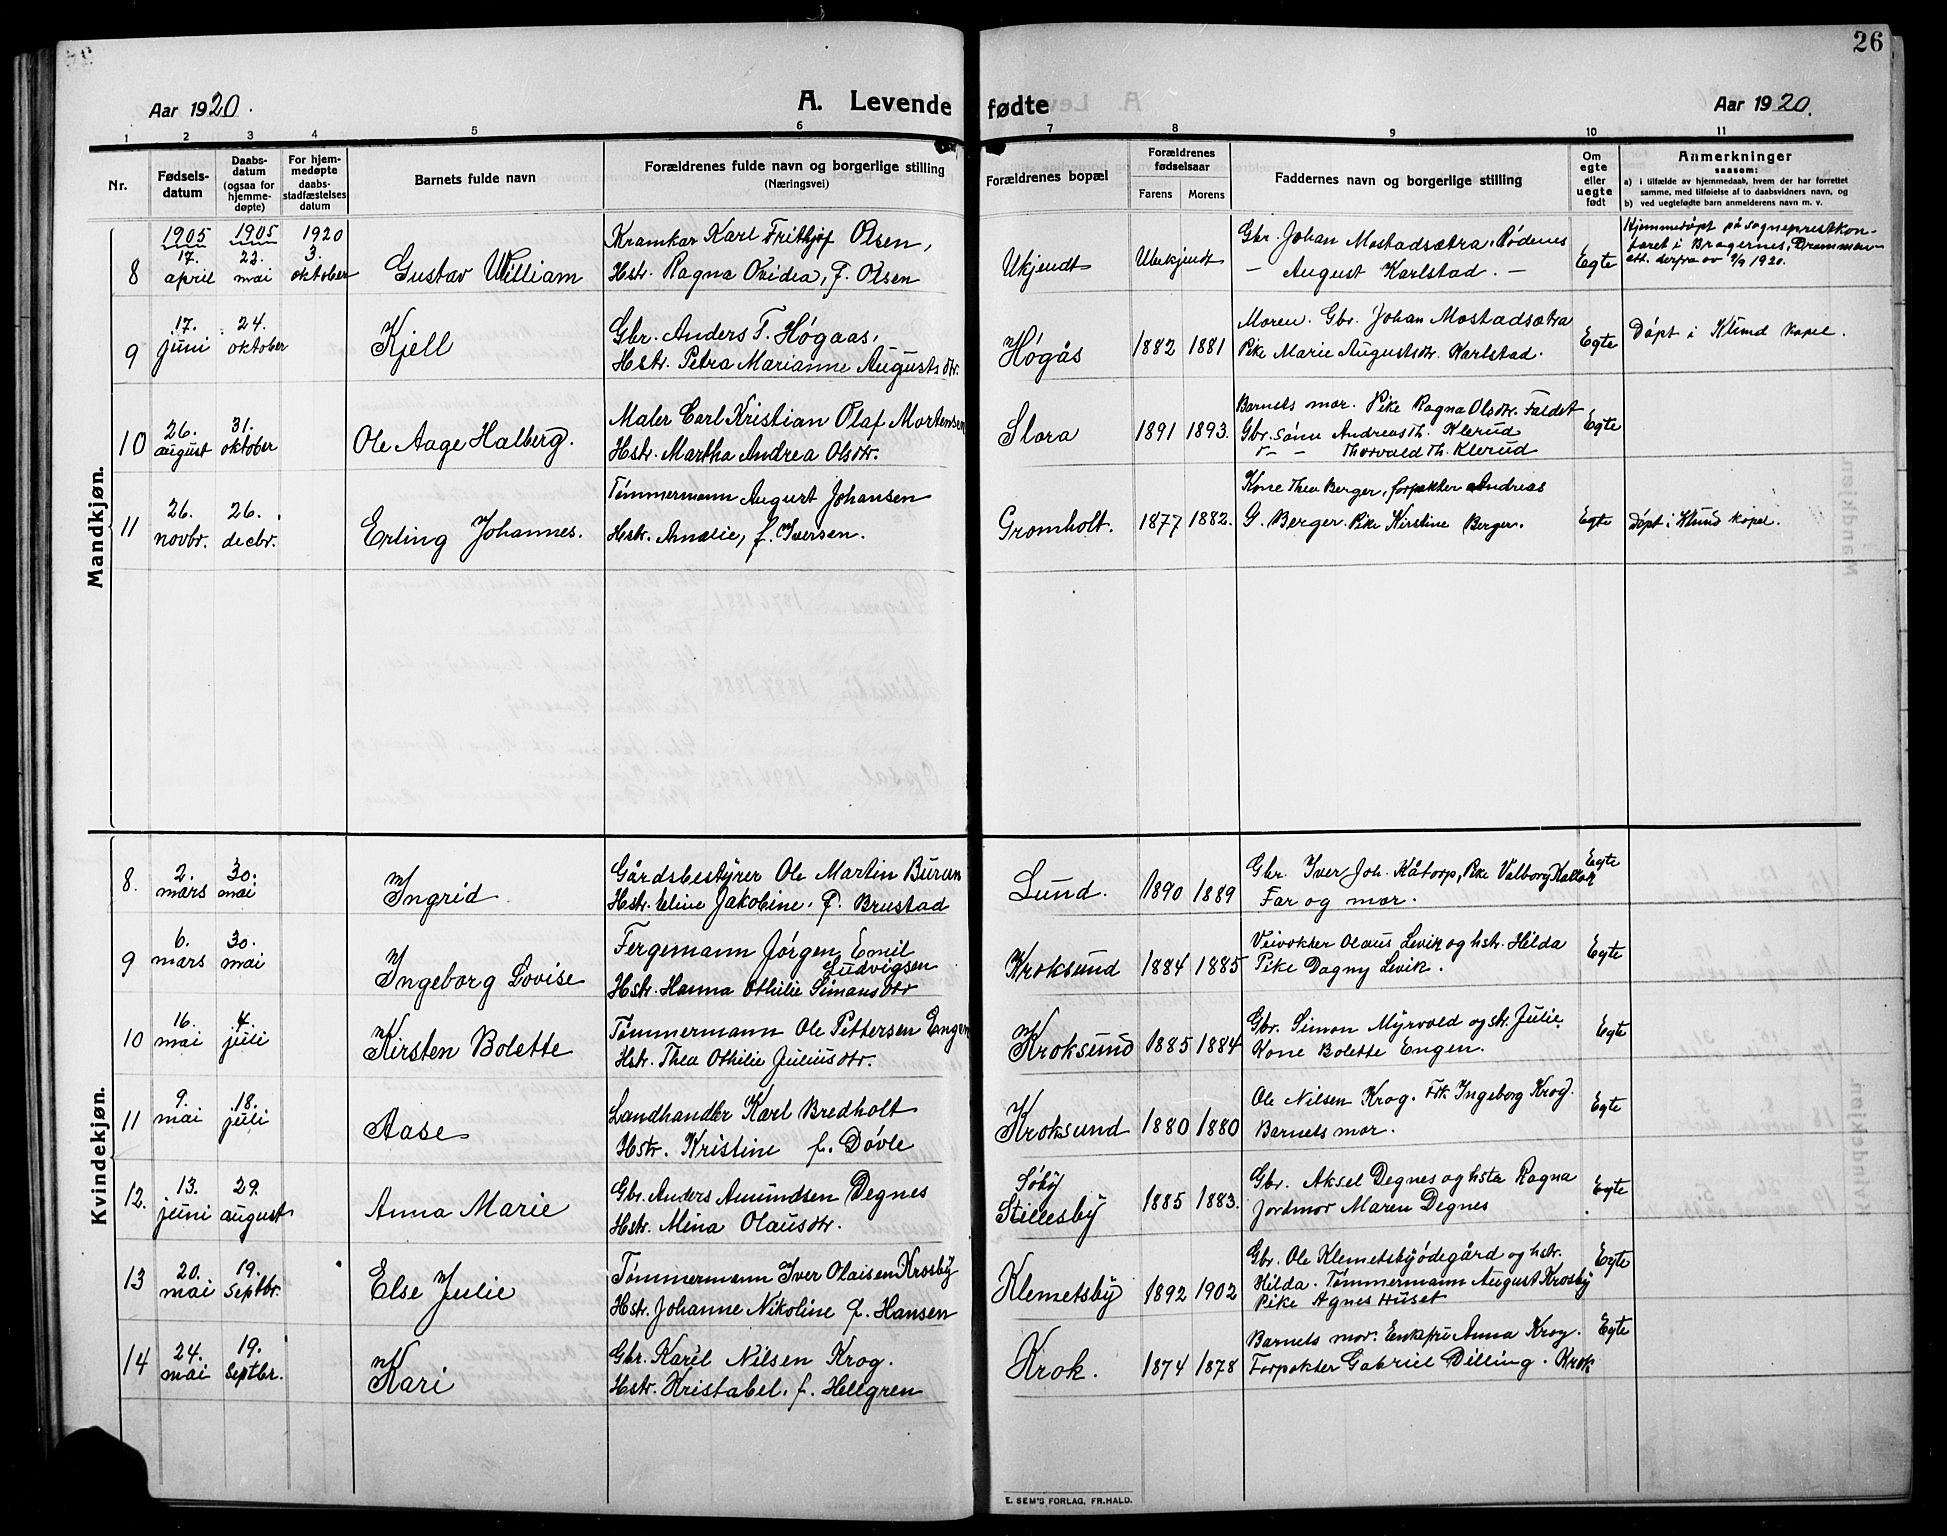 26
Aar 1920.
A. Levende fødte
Aar 1920.
1 2 3 4 5 6 7 8 9 10 11
Nr.
Fødsels-
datum
Daabs-
datum
(ogsaa for
hjemme-
døpte)
For hjem-
medøpte
daabs-
stadfæstelses
datum
Barnets fulde navn
Forældrenes fulde navn og borgerlige stilling
(Næringsvei)
Forældrenes bopæl
Forældrenes
fødselsaar
Farens Morens
Faddernes navn og borgerlige stilling
Om
egte
eller
uegte
født
Anmerkninger
saasom:
a) i tilfælde av hjemmedaab, hvem der har forrettet
samme, med tilføielse af to daabsvidners navn, og
b) ved uegtefødte barn anmelderens navn m. v.
Mandkjøn.
1905 1905 1920 Kramkar Karl Frithjof Olsen, Gbr. Johan Mostadsætra, Rødenes Hjemmedøpt på sogneprestkon-
8 17. april 22. mai 3. oktober Gustav William Hstr. Ragna Ovidia, f. Olsen Ukjendt Ubekjendt — August Karlstad. — Egte toret i Bragernes, Drammen
att. derfra av 9/9 1920.
9 17. juni 24. oktober Kjell Gbr. Anders T. Høgaas, Høgås 1882 1881 Moren. Gbr. Johan Mostadsætra Egte Døpt i Klund kapel.
Hstr. Petra Marianne Augustsdtr. Pike Marie Augustsdtr. Karlstad.
10 26. august 31. oktober Ole Aage Halberg. Maler Carl Kristian Olaf Mortensen Slora 1891 1893. Barnets mor. Pike Ragna Olsdtr. Faldet Egte
Hstr. Martha Andrea Olsdtr. Gbr. sønn Andreas Th. Klerud
— — Thorvald Th. Klerud
11 26. novbr. 26. decbr. Erling Johannes. Tømmermann August Johansen Gromholt. 1877 1882. Kone Thea Berger, forpakter Andreas Egte Døpt i Klund kapel.
Hstr. Amalie, f. Iversen. G. Berger. Pike Kirstine Berger.
Kvindekjøn.
8. 2. mars 30. mai Ingrid Gårdsbestyrer Ole Martin Buruen Lund. 1890 1889 Gbr. Iver Joh. Kåtorp, Pike Valborg Egte
Hstr. Eline Jakobine, f. Brustad Far og mor.
9 6. mars 30. mai Ingeborg Lovise Fergemann Jørgen Emil Ludvigsen Kroksund 1884 1885 Veivokter Olaus Levik og hstr. Hilda Egte
Hstr. Hanna Othilie Simensdtr Pike Dagny Levik.
10 16. mai 4. juli Kirsten Bolette Tømmermann Ole Pettersen Engen Kroksund 1885 1884 Gbr. Simon Myrvold og str. Julie. Egte
Hstr. Thea Othilie Juliusdtr. Kone Bolette Engen.
11 9. mai 18. juli Aase Landhandler Karl Bredholt Kroksund 1880 1880 Ole Nilsen Krog. Frk Ingeborg Krog. Egte
Hstr. Kristine f. Døvle Barnets mor.
12. 13. juni 29. august Anna Marie Gbr. Anders Amundsen Degnes Søby Stillesby 1885 1883. Gbr. Aksel Degnes og hstr Ragna Egte
Hstr. Mina Olausdtr. Jordmor Maren Degnes
13 20. mai 19. Septbr. Else Julie Tømmermann Iver Olaisen Krosby Klemetsby 1892 1902 Gbr. Ole Klemetsbyødegård og hstr. Egte
Hstr. Johanne Nikoline f. Hansen Hilda. Tømmermann August Krosby
Pike Agnes Huset
14 24. mai 19. Septbr. Kari Gbr. Karel Nilsen Krog. Krok. 1874 1878 Barnets mor. Enkefru Anna Krog. Egte
Hstr. Kristabel, f. Hellgren Forpakter Gabriel Dilling. Krok
E. SEM'S FORLAG, FR.HALD.